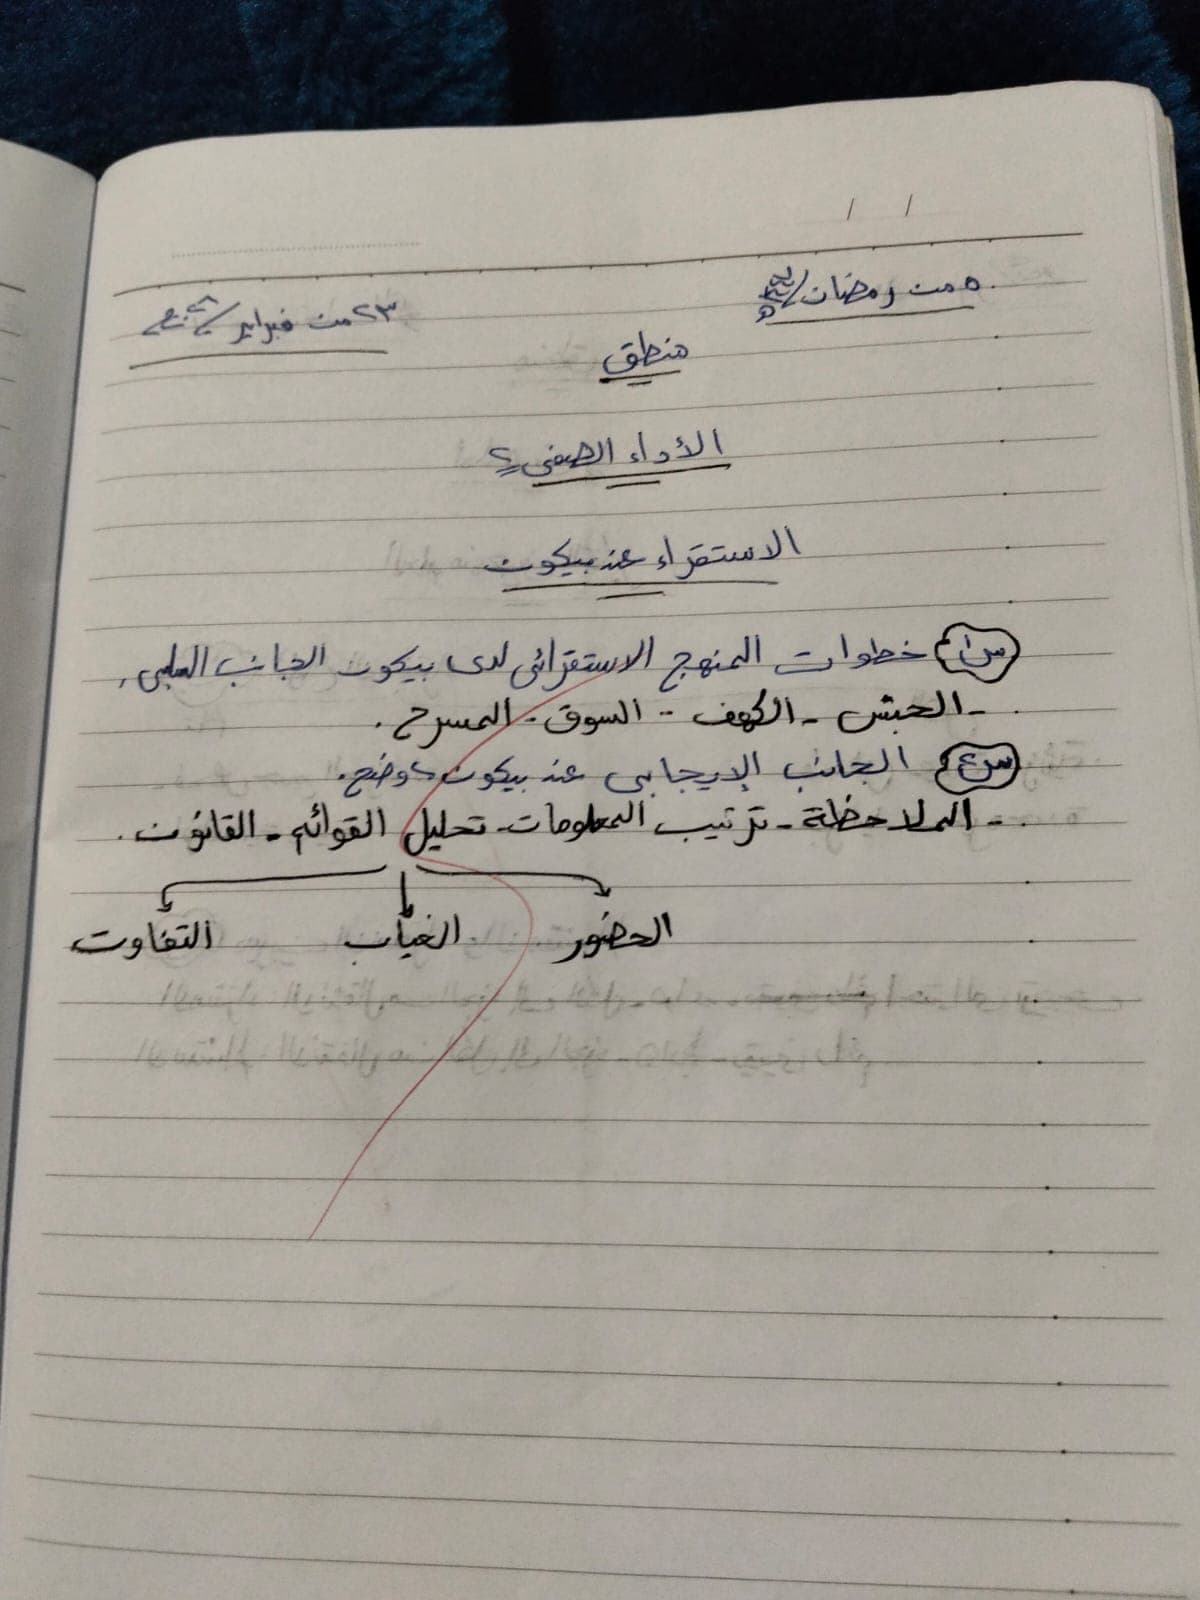 ٥ من رمضان / ١٤٤٧ هـ
٢٣ من فبراير / ٢٠٢٦ م
منطق
الأداء الصفى ؟
الاستقراء عند بيكون
س١ خطوات المنهج الاستقرائى لدى بيكون الجانب السلبى.
- الجنس - الكهف - السوق - المسرح.
س٢ الجانب الإيجابى عند بيكون ، وضح.
- الملاحظة - ترتيب المعلومات - تحليل القوائم - القانون.
الحضور الغياب التفاوت